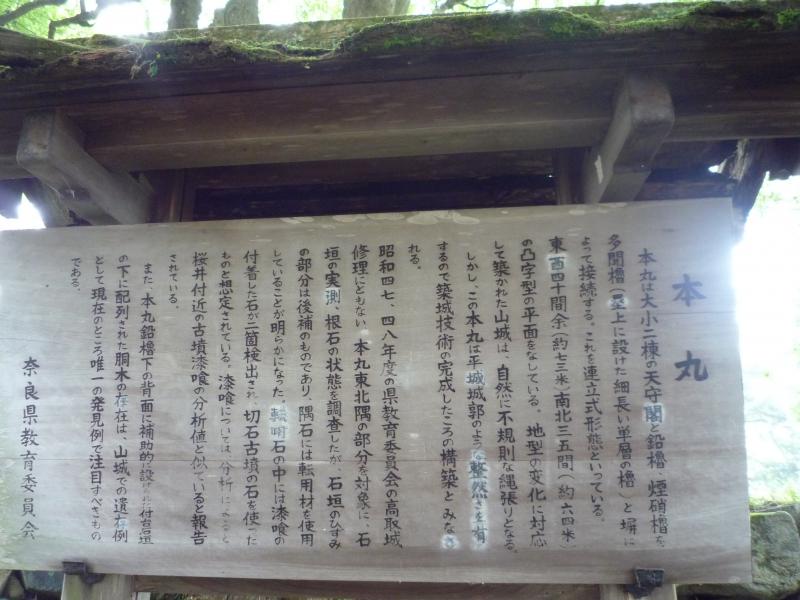 本丸
本丸は大小二棟の天守閣と鉛櫓、煙硝櫓を
多聞櫓(塁上に設けた細長い単層の櫓)と塀に
よって接続する。これを連立式形態といっている。
東西四十間余(約七三米)南北三五間(約六四米)
の凸字型の平面をなしている。地型の変化に対応
して築かれた山城は、自然に不規則な縄張りとなる。
しかし、この本丸は平城城郭のような整然さを有
するので築城技術の完成したころの構築とみなさ
れる。
昭和四七、四八年度の県教育委員会の高取城
修理にともない、本丸東北隅の部分を対象に、石
垣の実測、根石の状態を調査したが、石垣のひずみ
の部分は後補のものであり、隅石には転用材を使用
していることが明らかになった。転用石の中には漆喰の
付着した石が二箇検出され、切石古墳の石を使った
ものと想定されている。漆喰については、分析によると
桜井付近の古墳漆喰の分析値と似ていると報告
されている。
また、本丸鉛櫓下の背面に補助的に設けた付台垣
の下に配列された胴木の存在は、山城での遺存例
として現在のところ唯一の発見例で注目すべきもの
である。
奈良県教育委員会